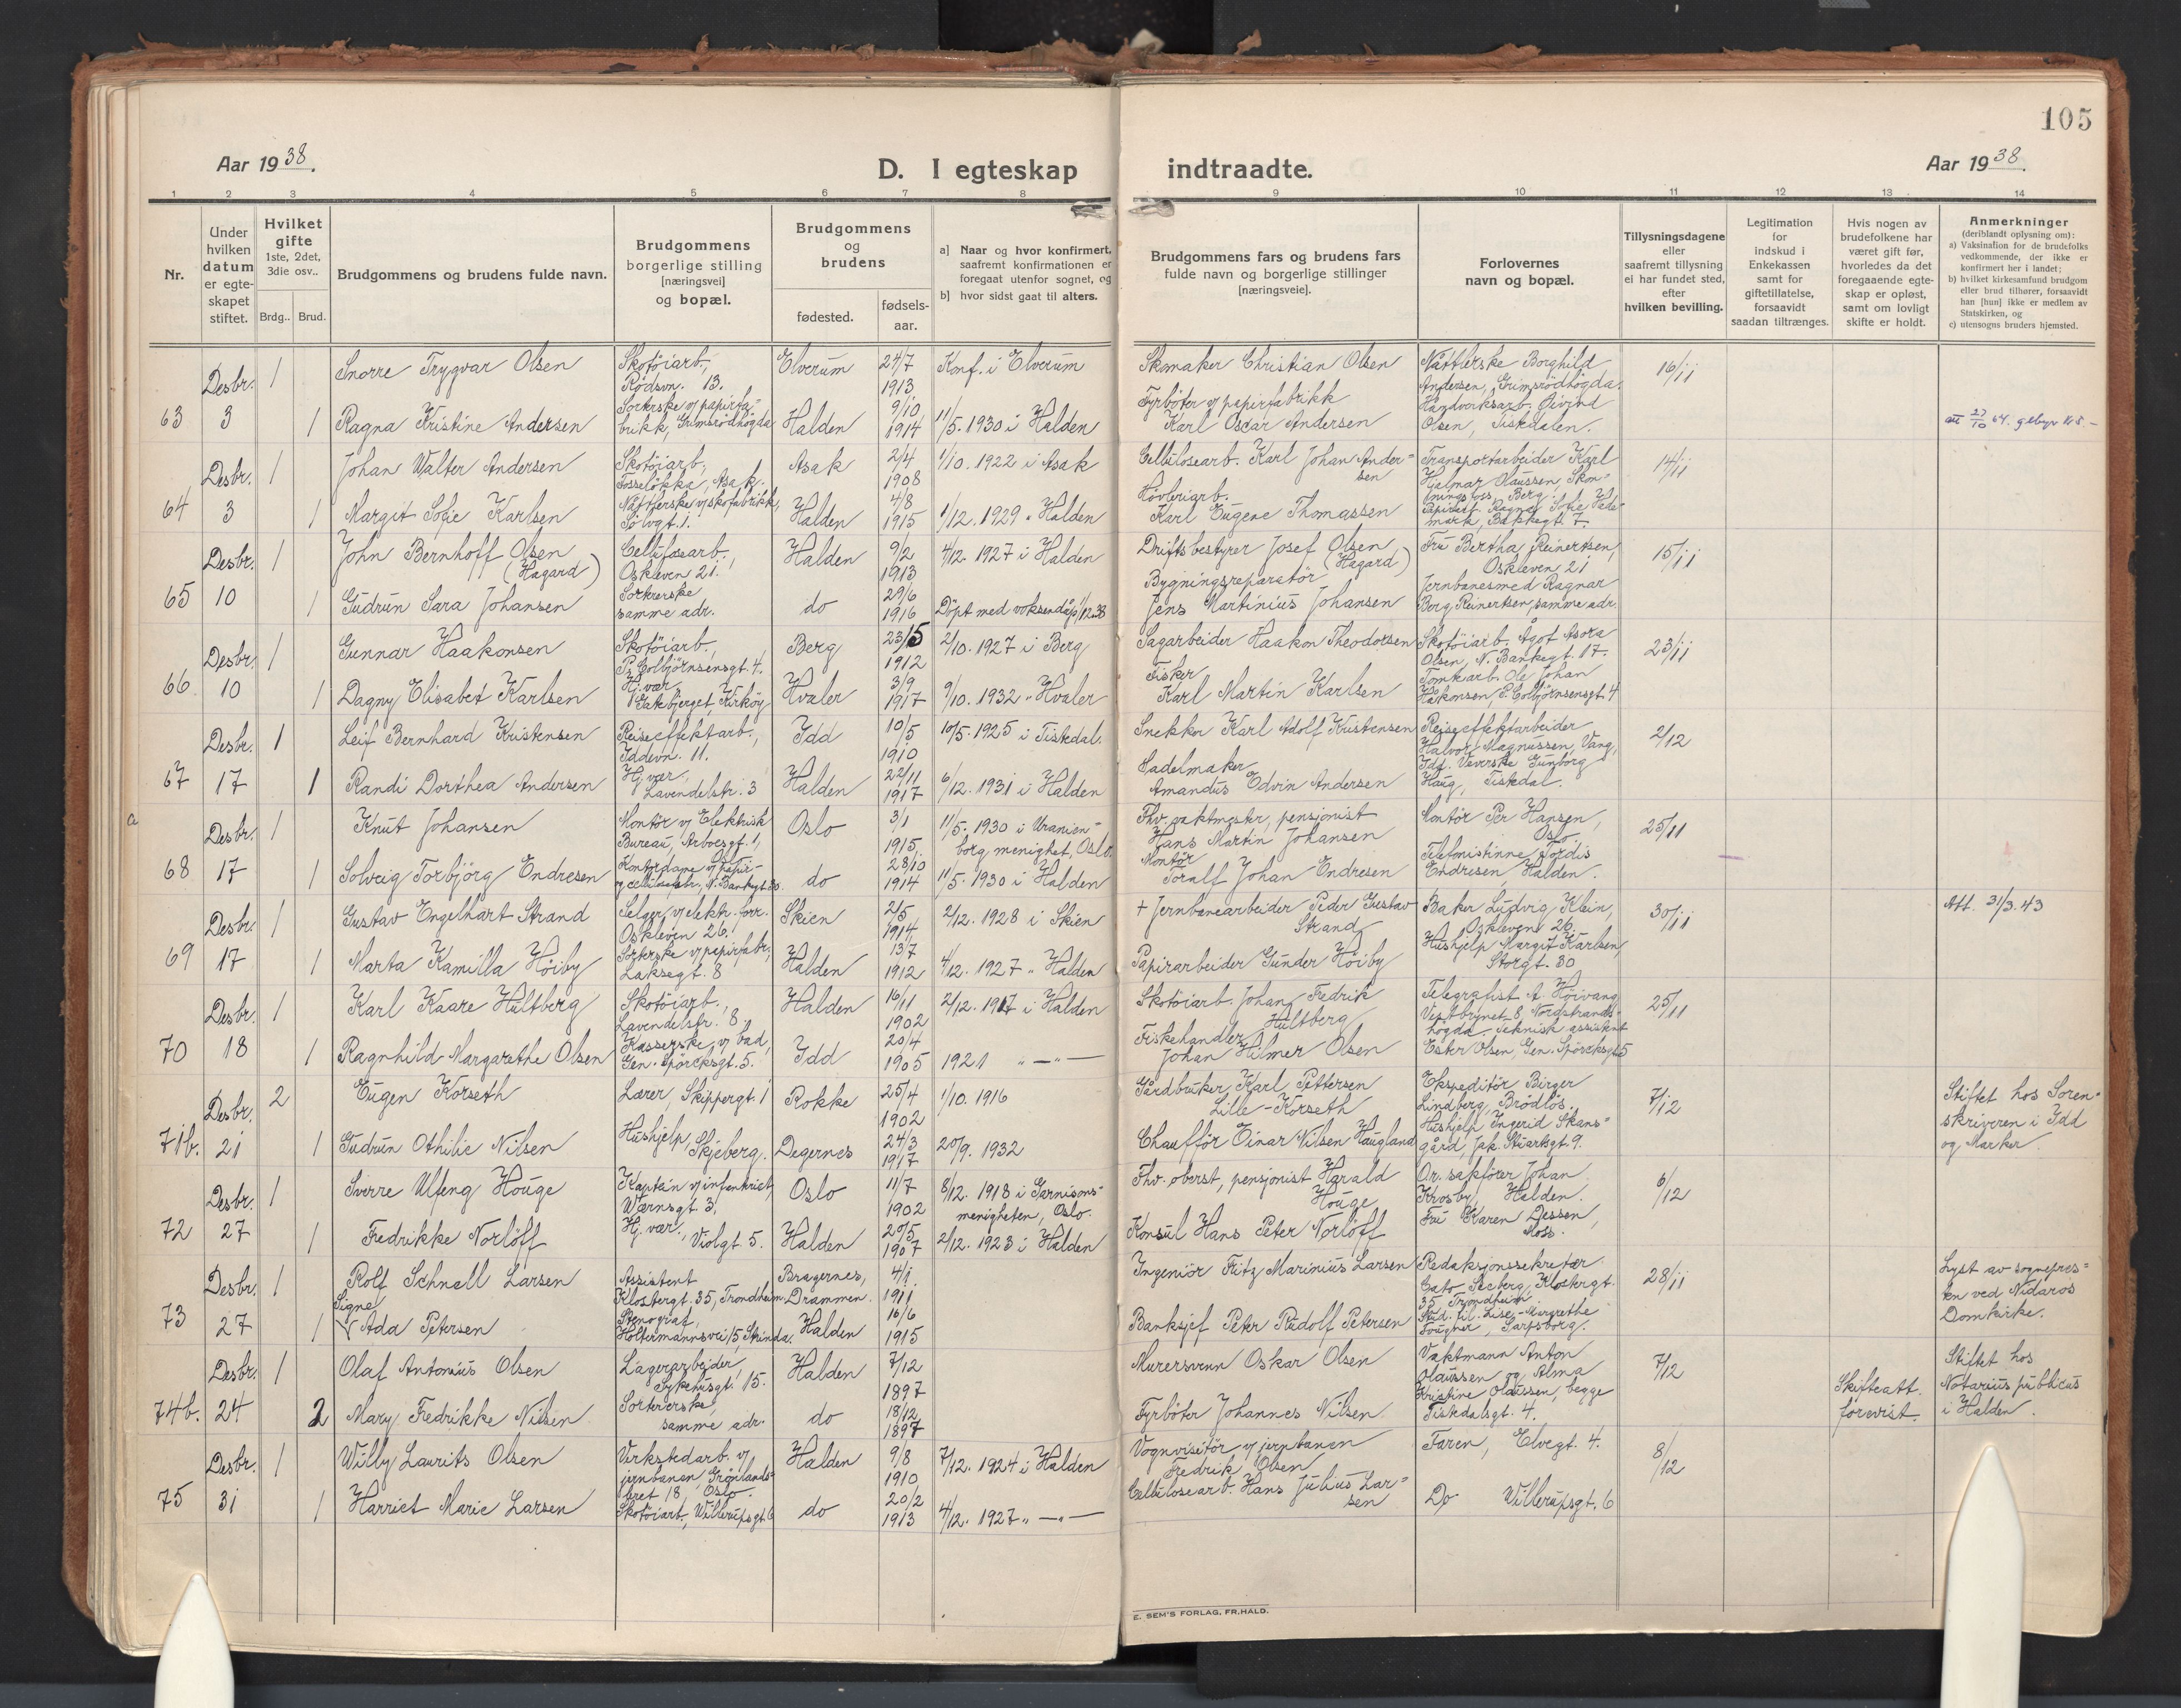 105
Aar 1938.
D. I egteskap indtraadte.
Aar 1938.
1 2 3 4 5 6 7 8 9 10 11 12 13 14
Nr.
Under hvilken datum er egteskapet stiftet.
Hvilket gifte 1ste, 2det, 3die osv..
Brdg.. Brud.
Brudgommens og brudens fulde navn.
Brudgommens borgerlige stilling [næringsvei] og bopæl.
Brudgommens og brudens
fødested.
fødsels-aar.
a] Naar og hvor konfirmert, saafremt konfirmationen er foregaat utenfor sognet, og
b] hvor sidst gaat til alters.
Brudgommens fars og brudens fars fulde navn og borgerlige stillinger [næringsveie].
Forlovernes navn og bopæl.
Tillysningsdagene eller saafremt tillysning ei har fundet sted, efter hvilken bevilling.
Legitimation for indskud i Enkekassen samt for giftetillatelse, forsaavidt saadan tiltrænges.
Hvis nogen av brudefolkene har været gift før, hvorledes da det foregaaende egteskap er opløst, samt om lovligt skifte er holdt.
Anmerkninger (deriblandt oplysning om):
a) Vaksination for de brudefolks vedkommende, der ikke er konfirmert her i landet;
b) hvilket kirkesamfund brudgom eller brud tilhører, forsaavidt han [hun] ikke er medlem av Statskirken, og
c) utensogns bruders hjemsted.
63 Desbr. 3 1 Snorre Trygvar Olsen Skotöiarb., Rödsvn. 13. Elverum 24/7 1913 Konf. i Elverum Skomaker Christian Olsen Nåtlerske Borghild Andersen, Grimsrödhögda. 16/11
1 Ragna Kristine Andersen Sorterske v/ papirfabrikk, Grimsrödhögda Halden 9/10 1914 11/5. 1930 i Halden Fyrböter v/ papirfabrikk Karl Oscar Andersen Handverksarb. Öivind Olsen, Tistedalen. 27/10 64. gebyr
64 Desbr. 3 1 Johan Walter Andersen Skotöiarb., Fosselökka, Asak. Asak 2/4 1908 1/10. 1922 i Asak Cellulosearb. Karl Johan Andersen Transportarbeider Karl Hjalmar Olaussen, Berg. 14/11
1 Margit Sofie Karlsen Nåtlerske v/ skofabrikk, Sölvgt. 1. Halden 4/8 1915 1/12. 1929 " Halden Hövleriarb. Karl Eugene Thomassen Ragna Sofie Bakkegt. 7.
65 Desbr. 10 1 John Bernhoff Olsen (Hagard) Cellulosearb., Oskleven 21. Halden 9/2 1913 4/12. 1927 i Halden Driftsbestyrer Josef Olsen (Hagard) Fru Bertha Reinertsen, Oskleven 21 15/11
1 Gudrun Sara Johansen Sorterske samme adr. do 29/6 1916 Döpt med voksendåp 1/12.38 Bygningsreparatör Jens Martinius Johansen Jernbanesmed Ragnar Berg Reinertsen, samme adr.
66. Desbr. 10 1 Gunnar Haakonsen Skotöiarb., P. Colbjörnsensgt. 4. Berg 23/5 1912 2/10. 1927 i Berg Sagarbeider Haakon Theodorsen Skotöiarb. Ågot Asora Olsen, N. Bankegt. 17. 23/11
1 Dagny Elisabet Karlsen Hj. vær. Bakbjerget, Kirköy Hvaler 3/9 1917 9/10. 1932 " Hvaler Fisker Karl Martin Karlsen Tomtearb. Ole Johan Håkonsen, P. Colbjörnsensgt. 4
67 Desbr. 17 1 Leif Bernhard Kristensen Reiseeffektarb., Iddevn. 11. Idd 10/5 1910 10/5. 1925 i Tistedal. Snekker Karl Adolf Kristensen Reiseeffektarbeider Halvor Magnussen, Vang, Idd. 2/12
1 Randi Dorthea Andersen Hj. vær. Lavendelstr. 3 Halden 22/11 1917 6/12. 1931 i Halden Sadelmaker Amandus Edvin Andersen Veverske Gunborg Haug, Tistedal.
a
68 Desbr. 17 1 Knut Johansen Montör v/ Elektrisk Bureau, Arboesgt. 1, Oslo 3/1 1915. 11/5. 1930 i Uranienborg menighet, Oslo. Fhv. vaktmester, pensjonist Hans Martin Johansen Montör Per Hansen, Oslo 25/11
1 Solveig Torbjörg Endresen Kontordame v/ papir- og cellulosefabr., N. Bankegt. 30. do 28/10 1914 11/5. 1930 i Halden Montör Toralf Johan Endresen Telefonistinne Tordis Endresen, Halden.
69 Desbr. 17 1 Gustav Engelhart Strand Selger v/ elektr. forr. Oskleven 26. Skien 2/5 1914 2/12. 1928 i Skien + Jernbanearbeider Peder Gustav Strand Baker Ludvig Klein, Oskleven 26. 30/11 Att. 31/3.43
1 Marta Kamilla Höiby Sorterske v/ papirfabr., Laksegt. 8 Halden 13/7 1912 4/12. 1927 " Halden Papirarbeider Gunder Höiby Hushjelp Margit Karlsen, Storgt. 30
70 Desbr. 18 1 Karl Kaare Hultberg Skotöiarb., Lavendelstr. 8. Halden 16/11 1902 2/12. 1917 i Halden Skotöiarb. Johan Fredrik Hultberg Telegrafist A. Höivang, Vestbrynet 8, Nordstrandshögda. 25/11
1 Ragnhild Margarethe Olsen Kasserske v/ bad, Gen. Spörcksgt. 5. Idd 20/4 1905 1921 " — " — Fiskehandler Johan Hilmer Olsen Teknisk assistent Ester Olsen, Gen. Spörcksgt. 5
71b. Desbr. 21 2 Eugen Korseth Lærer, Skippergt. 1 Rokke 25/4 1902 1/10. 1916 Gårdbruker Karl Pettersen Lille-Korseth Ekspeditör Birger Lindberg, Brödlös. 7/12 Stiftet hos Sorenskriveren i Idd og Marker.
1 Gudrun Othilie Nilsen Hushjelp, Skjeberg. Degernes 24/3 1917 20/9. 1932 Chauffför Einar Nilsen Haugland Hushjelp Ingerid Skansgård, Jak. Stuartsgt. 9.
72 Desbr. 27 1 Sverre Ulfeng Houge Kaptein v/ infanteriet, Wærnsgt. 3. Oslo 11/7 1902 8/12. 1918 i Garnisonsmenigheten, Oslo. Fhv. oberst, pensjonist Harald Houge Or. sakförer Johan Krosby, Halden. 6/12
1 Fredrikke Norlöff Hj. vær., Violgt 5. Halden 20/5 1907 2/12. 1923 i Halden Konsul Hans Peter Norlöff Fru Karen Jessen, Moss.
73 Desbr. 27 1 Rolf Schnell Larsen Assistent Klostergt. 35, Trondheim Bragernes, Drammen. 4/1. 1911 Ingeniör Fritz Marinius Larsen Redaksjonssekretær Cato Seeberg, Klostergt. 35, Trondheim 28/11 Lyst av sognepresten ved Nidaros Domkirke.
1 Signe Ada Petersen Stenograf, Holtermannsvei 15, Strinda. Halden 16/6 1915 Banksjef Peter Rudolf Petersen Stud. fil. Lise Margrethe Fougner, Sarpsborg.
74b. Desbr. 24 1 Olaf Antonius Olsen Lagerarbeider, Sykehusgt. 15. Halden 7/12 1897 Murersvenn Oskar Olsen Vaktmann Anton Olaussen og Alma Kristine Olaussen, begge Tistedalsgt. 4. 7/12 Skifteatt. forevist. Stiftet hos Notarius publicus i Halden.
2 Mary Fredrikke Nilsen Sortererske, samme adr. do 18/12 1897 Fyrböter Johannes Nilsen
75 Desbr. 31 1 Willy Laurits Olsen Verkstedarb. v/ jernbanen, Grönlandstoret 18, Oslo. Halden 9/8 1910 7/12. 1924 i Halden Vognvisitör v/ jernbanen Fredrik Olsen Faren, Elvegt. 4. 8/12
1 Harriet Marie Larsen Skotöiarb., Willerupsgt. 6 do 20/2 1913 4/12. 1927 " — " — Cellulosearb. Hans Julius Larsen Do Willerupsgt. 6
E. SEM'S FORLAG, FR.HALD.